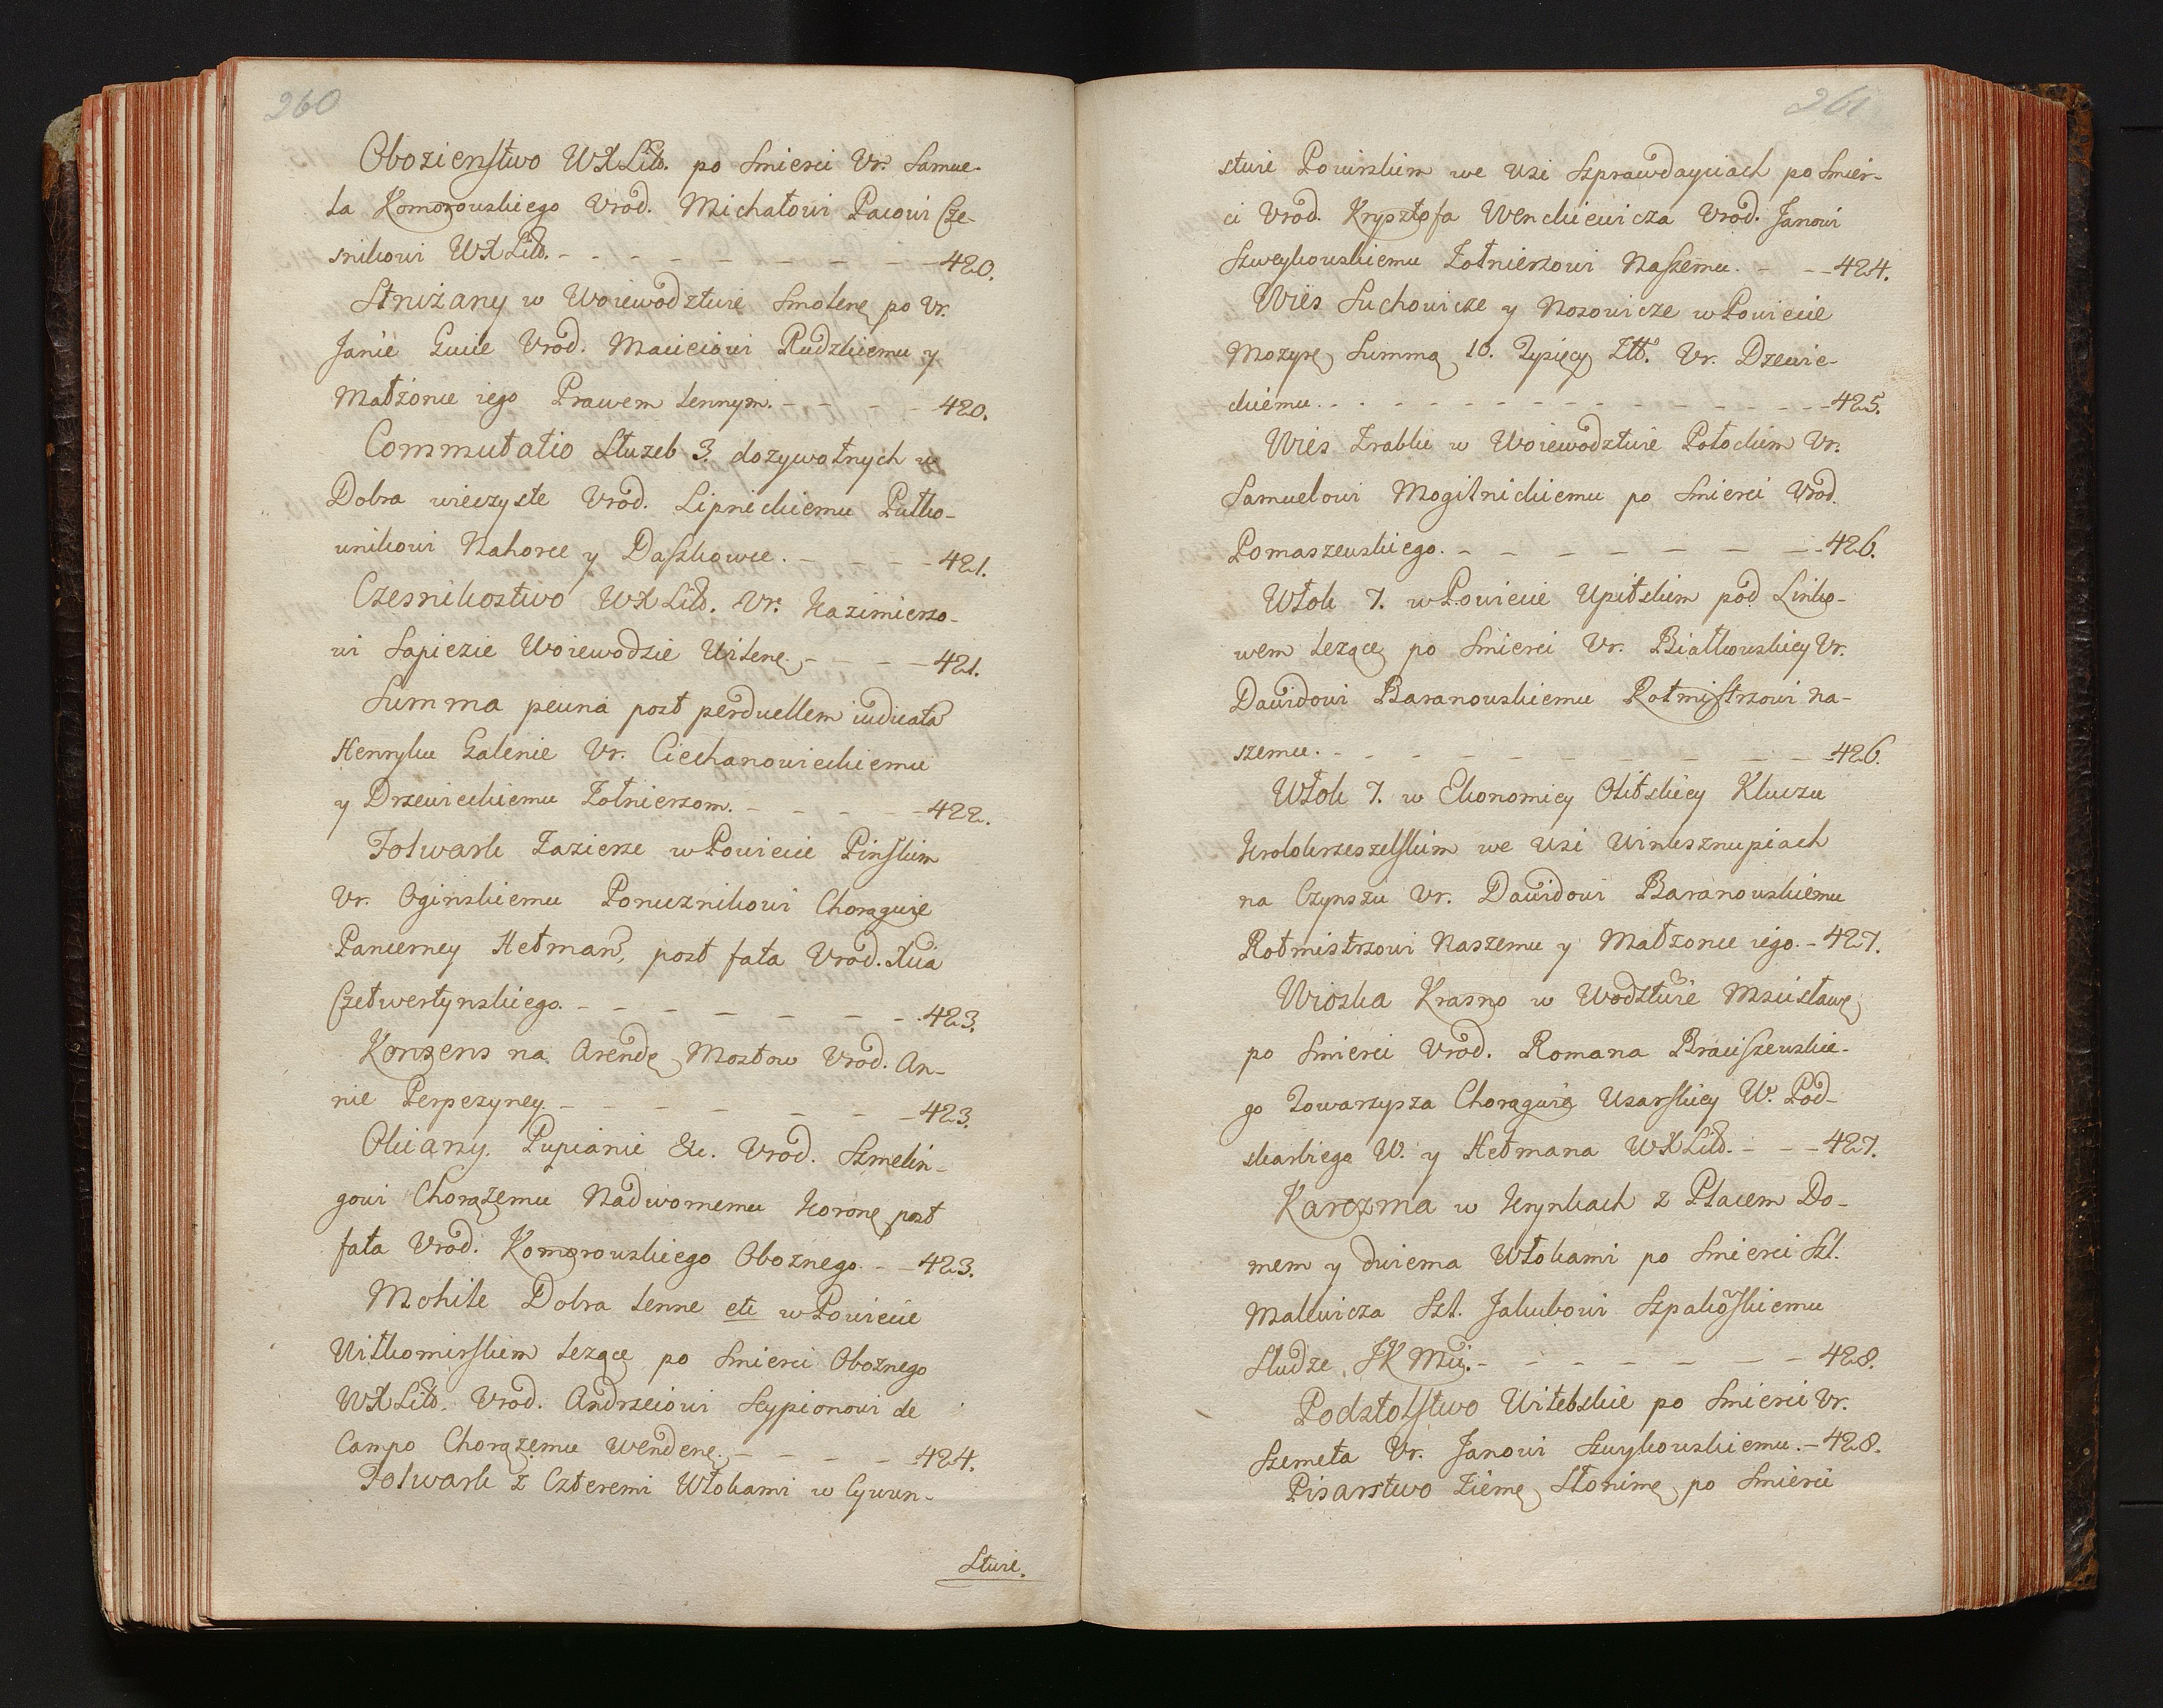 260
Obozienstwo WXLitt. po Smierci Ur. Samue-
la Komorowskiego Urod. Michałowi Pacowi Cze-
snikowi WXLitt. - - - - - - - - 420.
Strużany w Woiewodztwie Smolenę po Ur.
Janie Guie Urod. Maciejowi Rudzkiemu y
Małżonce iego Prawem Lennym. - - - - 420.
Commutatio Służeb 3. dozywotnych w
Dobra wieczyste Urod. Lipnickiemu Pułko-
wnikowi Nahorce y Daszkowce. - - - - 421.
Czesnikostwo WXLitt. Ur. Kazimierzo-
wi Sapiezie Woiewodzie Wilenę. - - - - 421.
Summa pewna post perduellem iudicata
Henryku Galenie Ur. Ciechanowieckiemu
y Drzewieckiemu Żołnierzom. - - - - - 422.
Folwark Zazierze w Powiecie Pinskim
Ur. Oginskiemu Porucznikowi Chorągwie
Pancerney Hetman, post fata Urod. Xcia
Czetwertynskiego. - - - - - - - - 423.
Konsens na Arendę Mostow Urod. An-
nie Perpezyney. - - - - - - - - 423.
Okiany. Pupianie &c. Urod. Szmelin-
gowi Chorążemu Nadwornemu Koronę post
fata Urod. Komorowskiego Oboznego. - - 423.
Mohile Dobra Lenne etc w Powiecie
Wiłkomirskim lezące po Smierci Oboznego
WXLitt. Urod. Andrzeiowi Scypionowi de
Campo Chorążemu Wendenę. - - - - - 424.
Folwark z Czteremi Włokami w Cywun-
stwie.
261
stwie Powirskim we Wsi Szprawdayciach po Smier-
ci Urod. Krysztofa Wenckiewicza Urod. Janowi
Szweykowskiemu Żołnierzowi Naszemu. - - - 424.
Wies Suchowicze y Nosowicze w Powiecie
Mozyrę Summą 10. Tysięcy Złł. Ur. Dzewie-
ckiemu. - - - - - - - - - - - - - 425.
Wies Zrabku w Woiewodztwie Połockim Ur.
Samuelowi Mogilnickiemu po Smierci Urod.
Pomaszewskiego. - - - - - - - - 426.
Włok 7. w Powiecie Upitskim pod Linko-
wem lezące po Smierci Ur. Białkowskiey Ur.
Dawidowi Baranowskiemu Rotmistrzowi na-
szemu. - - - - - - - - - - - - 426.
Włok 7. w Ekonomiey Olitskiey Kluczu
Krolokrzeszelskim we Wsi Winksznupiach
na Czynszu Ur. Dawidowi Baranowskiemu
Rotmistrzowi Naszemu y Małżonce iego. - 427.
Wioska Krasno w Wodztwie Mscisławę
po Smierci Urod. Romana Braciszewskie-
go Towarzysza Chorągwie Usarskiey W. Pod-
skarbiego W. y Hetmana WXLitt. - - - 427.
Karczma w Krynkach z Placem Do-
mem y dwiema Włokami po Smierci Szl.
Malewicza Szl. Jakubowi Szpakoskiemu
Słudze JKMci. - - - - - - - - 428.
Podstolstwo Witebskie po Smierci Ur.
Szemeta Ur. Janowi Szwykowskiemu. - 428.
Pisarstwo Ziemę Słonimę po Smierci